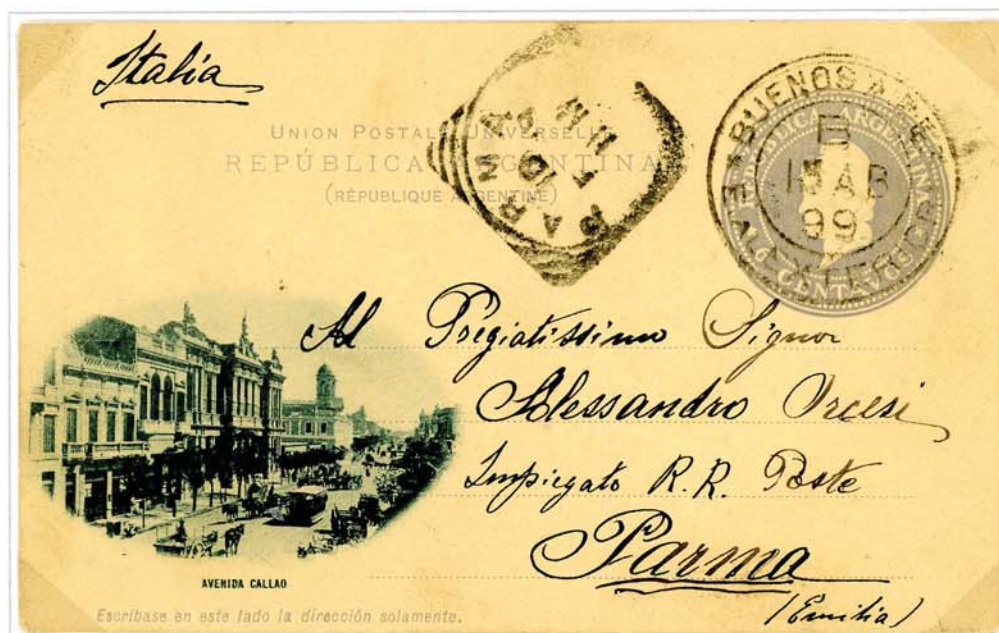 Italia
UNION POSTALE UNIVERSELLE
REPÚBLICA ARGENTINA
(RÉPUBLIQUE ARGENTINE)
PARMA
BUENOS AIRES
B
AB
99
REPUBLICA ARGENTINA
6 CENTAVOS
Al Pregiatissimo Signor
Alessandro Orcesi
Impiegato R.R. Poste
Parma
(Emilia)
AVENIDA CALLAO
Escríbase en este lado la dirección solamente.